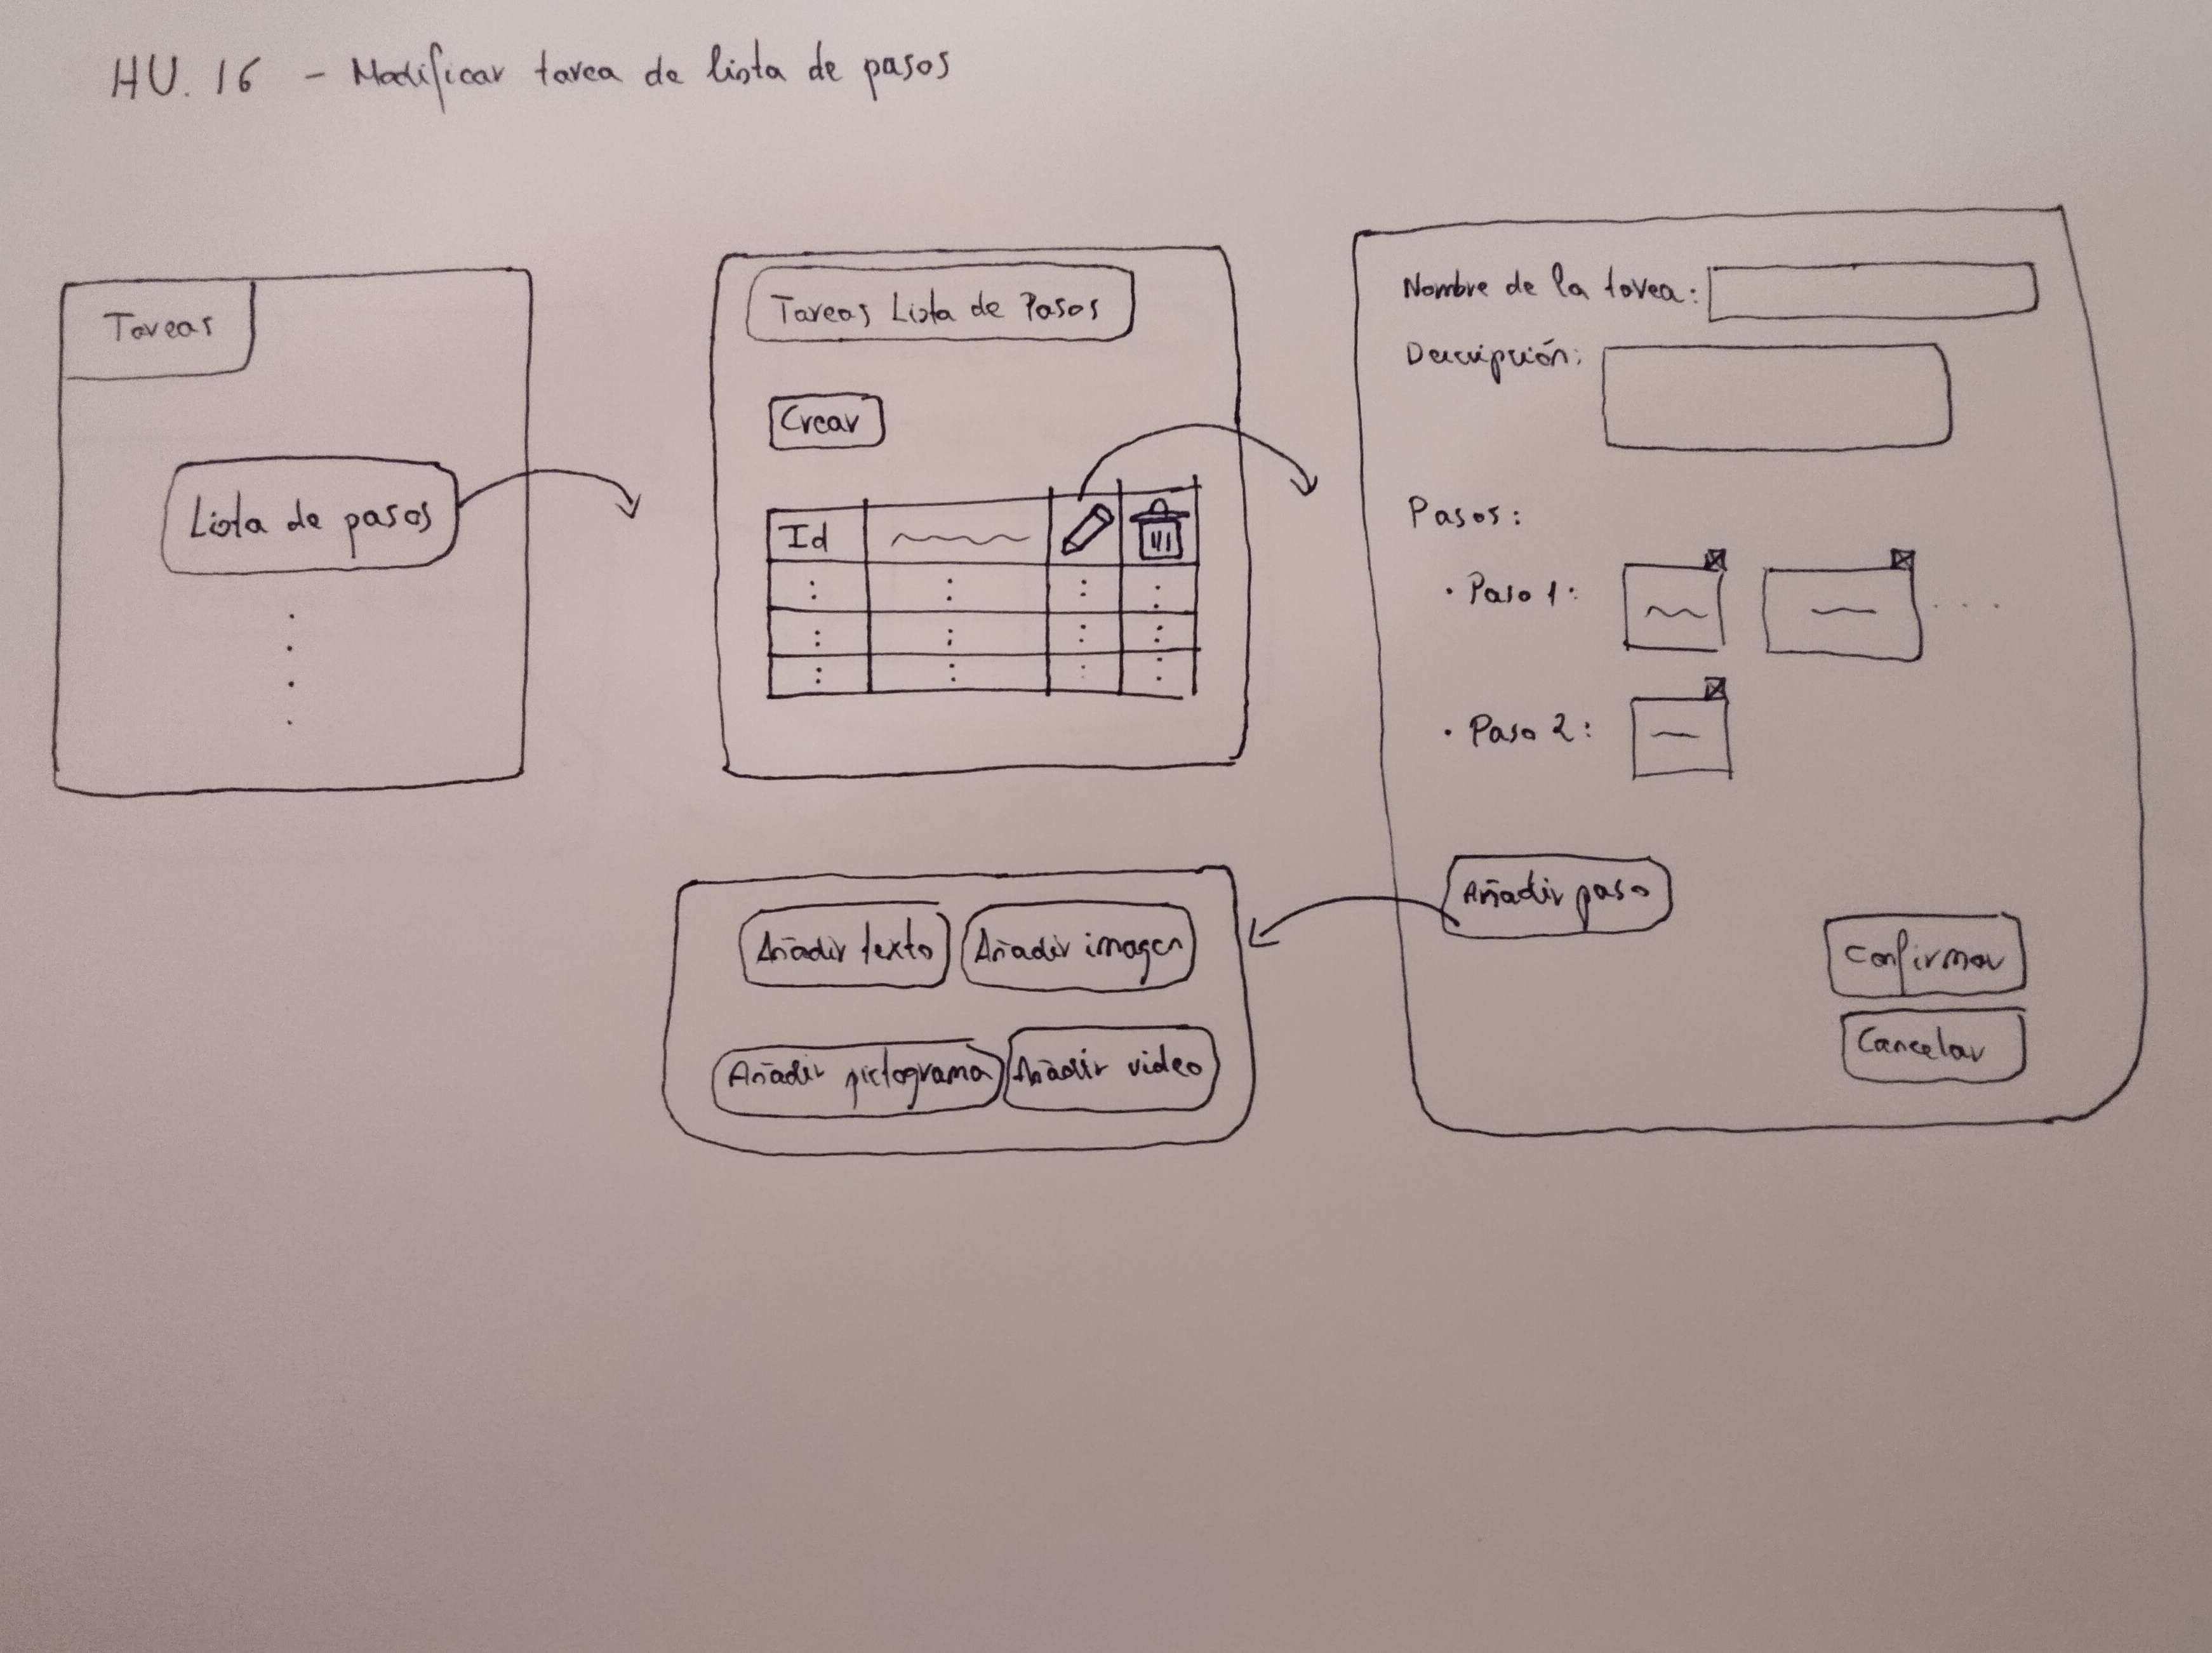 HU. 16 - Modificar tarea de lista de pasos
Tareas
Lista de pasos
Tareas Lista de Pasos
Crear
Id
Nombre de la tarea:
Descripción:
Pasos:
· Paso 1:
· Paso 2:
Añadir paso
Confirmar
Cancelar
Añadir texto
Añadir imagen
Añadir pictograma
Añadir video